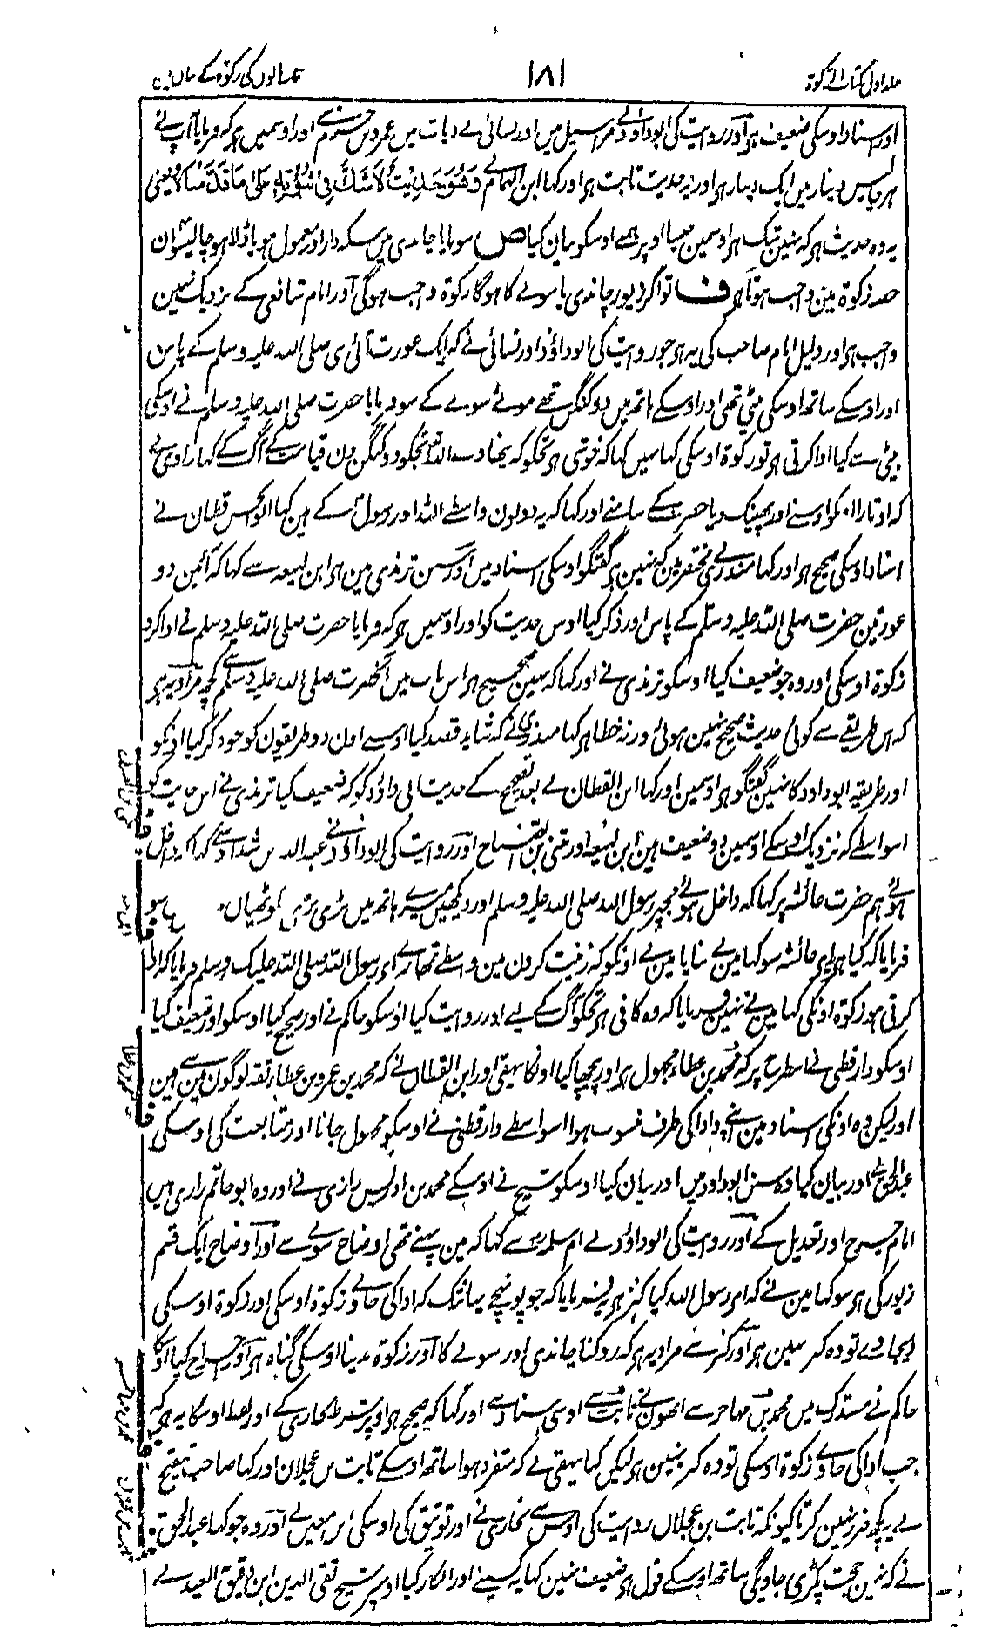 جلد اول کتاب الزکوۃ ۱۸۱ کی زکوۃ کے بیان
اور اسناد اوسکی ضعیف ہی اور روایت کی ابوداؤد نے مراسیل میں اور نسائی نے دیات میں عمرو بن حزم سے اور اوسمیں ہی کہ فرمایا آپ نے
ہر چالیس دینار میں ایک دینار ہی اور یہ حدیث ثابت ہی اور کہا ابن الہمام نے وَهُوَ حَدِيثٌ لَا شَكَّ فِي ثُبُوتِهِ عَلَى مَا قَدَّمْنَا یعنی
یہ وہ حدیث ہی کہ نہین شک ہی اوسمین جیسا اوپر ہمنے اوسکو بیان کیا ص سونا یا چاندی میں سکہ دار اور معمول ہو یا ڈلا ہو چالیسوان
حصہ زکوۃ مین واجب ہوتا ہی ف تو اگر زیور چاندی یا سونے کا ہوگا زکوۃ واجب ہوگی اور امام شافعی کے نزدیک نہین
واجب ہی اور دلیل امام صاحب کی یہ ہی جو روایت کی ابوداؤد اور نسائی نے کہ ایک عورت آئی نبی صلی اللہ علیہ وسلم کے پاس
اور اوسکے ساتھ اوسکی بیٹی تھی اور اوسکے ہاتھ میں دو کنگن تھے موٹے سونے کے سو فرمایا حضرت صلی اللہ علیہ وسلم نے اوسکی
بیٹی سے کیا ادا کرتی ہی تو زکوۃ اوسکی کہا نہیں کہا کہ خوشی ہی تجکو کہ پہناوے اللہ تعالی تجکو دو کنگن دن قیامت کے آگ کے کہا راوی نے
کہ اوتارا انکو اوسنے اور پھینک دیا حضرت کے سامنے اور کہا کہ یہ دونون واسطے اللہ اور رسول کے ہین کہا ابوالحسن قطان نے
اسناد اوسکی صحیح ہی اور کہا منذری نے مختصر میں کہ نہین ہی گفتگو اوسکی اسناد میں اور سنن ترمذی مین ہی ابن لہیعہ سے کہا کہ آئین دو
عورتین حضرت صلی اللہ علیہ وسلم کے پاس اور ذکر کیا اوس حدیث کو اور اوسمیں ہی کہ فرمایا حضرت صلی اللہ علیہ وسلم نے ادا کرو
زکوۃ اوسکی اور وہ جو ضعیف کیا اوسکو ترمذی نے اور کہا کہ نہین صحیح ہی اس باب میں آنحضرت صلی اللہ علیہ وسلم سے کچھ مراد یہ ہی
کہ اس طریقے سے کوئی حدیث صحیح نہین ہوئی ورنہ خطا ہی کہا منذری نے کہ شاید قصد کیا اوسنے اون دو طریقون کو جو ذکر کیا اونکو
اور طریقہ ابوداود کا نہین گفتگو ہی اوسمین اور کہا ابن القطان نے بعد تصحیح کے حدیث ابی داؤد کو کہ ضعیف کیا ترمذی نے اس حدیث کو
اسواسطے کہ نزدیک اوسکے اوسمین دو ضعیف ہین ابن لہیعہ اور مثنی بن الصباح اور روایت کی ابوداؤد نے عبد اللہ بن شداد سے کہا کہ داخل
ہوئے ہم حضرت عائشہ پر کہا کہ داخل ہوئے مجھپر رسول اللہ صلی اللہ علیہ وسلم اور دیکھیں میرے ہاتھ میں بڑی بڑی انگوٹھیاں سو
فرمایا کہ کیا ہی یہ ای عائشہ سو کہا مین نے بنایا مین نے اونکو کہ زینت کرون مین واسطے تمھارے ای رسول اللہ صلی اللہ علیک وسلم فرمایا کہ ادا
کرتی ہو زکوۃ اونکی کہا مین نے نہین فرمایا کہ وہ کافی ہی تجکو آگ کے لیے اور روایت کیا اوسکو حاکم نے اور صحیح کیا اوسکو اور ضعیف کیا
اوسکو دارقطنی نے اسطرح پر کہ محمد بن عطاء مجہول ہی اور پیچھا کیا اونکا بیہقی اور ابن القطان نے کہ محمد بن عمرو بن عطاء ثقہ لوگون مین سے ہین
اور لیکن وہ اونکی اسناد مین اپنے دادا کی طرف منسوب ہوا اسواسطے دارقطنی نے اوسکو مجہول جانا اور متابعت کی اوسکی
عبدالحق نے اور بیان کیا وہ سنن ابوداود میں اور بیان کیا اوسکو شیخ نے اوسکے محمد بن ادریس رازی نے اور وہ ابوحاتم رازی ہیں
امام جرح اور تعدیل کے اور روایت کی ابوداؤد نے ام سلمہ سے کہا کہ مین پہنے تھی اوضاح سونے سے اور اوضاح ایک قسم
زیور کی ہی سو کہا مین نے کہ ای رسول اللہ کیا کنز ہی یہ فرمایا کہ جو پہونچے یہانتک کہ ادا کی جاوے زکوۃ اوسکی اور زکوۃ اوسکی
دیجاوے تو وہ کنز نہین ہی اور کنز سے مراد یہ ہی کہ روکنا چاندی اور سونے کا اور زکوۃ ندینا اوسکی گناہ ہی اور اخراج کیا اوسکا
حاکم نے مستدرک میں محمد بن مہاجر سے انھون نے ثابت سے اوسی اسناد سے اور کہا کہ صحیح ہی اوپر شرط بخاری کے اور لفظ اوسکا یہ ہی کہ
جب ادا کی جاوے زکوۃ اوسکی تو وہ کنز نہین ہی لیکن کہا بیہقی نے کہ متفرد ہوا ساتھ اوسکے ثابت بن عجلان اور کہا صاحب تنقیح
نے یہ کچھ ضرر نہین کرتا کیونکہ ثابت بن عجلان روایت کی اوس سے بخاری نے اور توثیق کی اوسکی ابن معین نے اور وہ جو کہا عبدالحق
نے کہ نہین حجت پکڑی جاویگی ساتھ اوسکے قول ہی ضعیف نہین کہا یہ کسینے اور انکار کیا اوسپر شیخ تقی الدین ابن دقیق العید نے